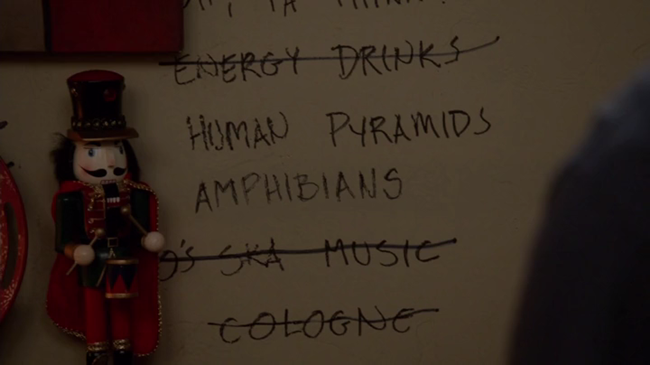 ENERGY DRINKS
HUMAN PYRAMIDS
AMPHIBIANS
SKA MUSIC
COLOGNE